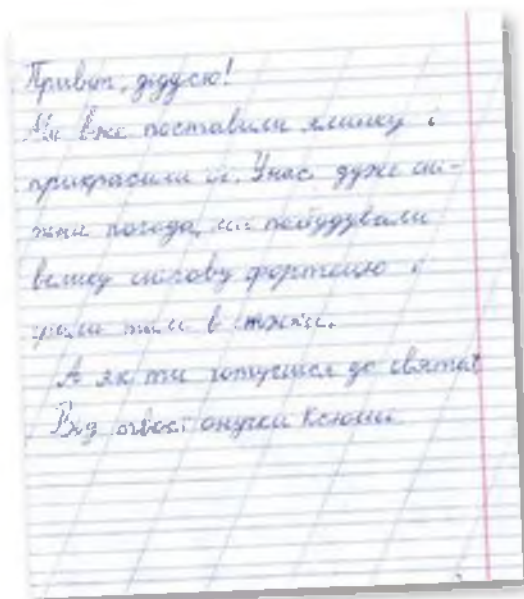 Привіт, дідусю!
Ми вже поставили ялинку і
прикрасили її. У нас дуже сні-
жна погода, ми побудували
велику снігову фортецю і
грали там в
А як ти готуєшся до свята?
Від твоєї онучки Ксюши